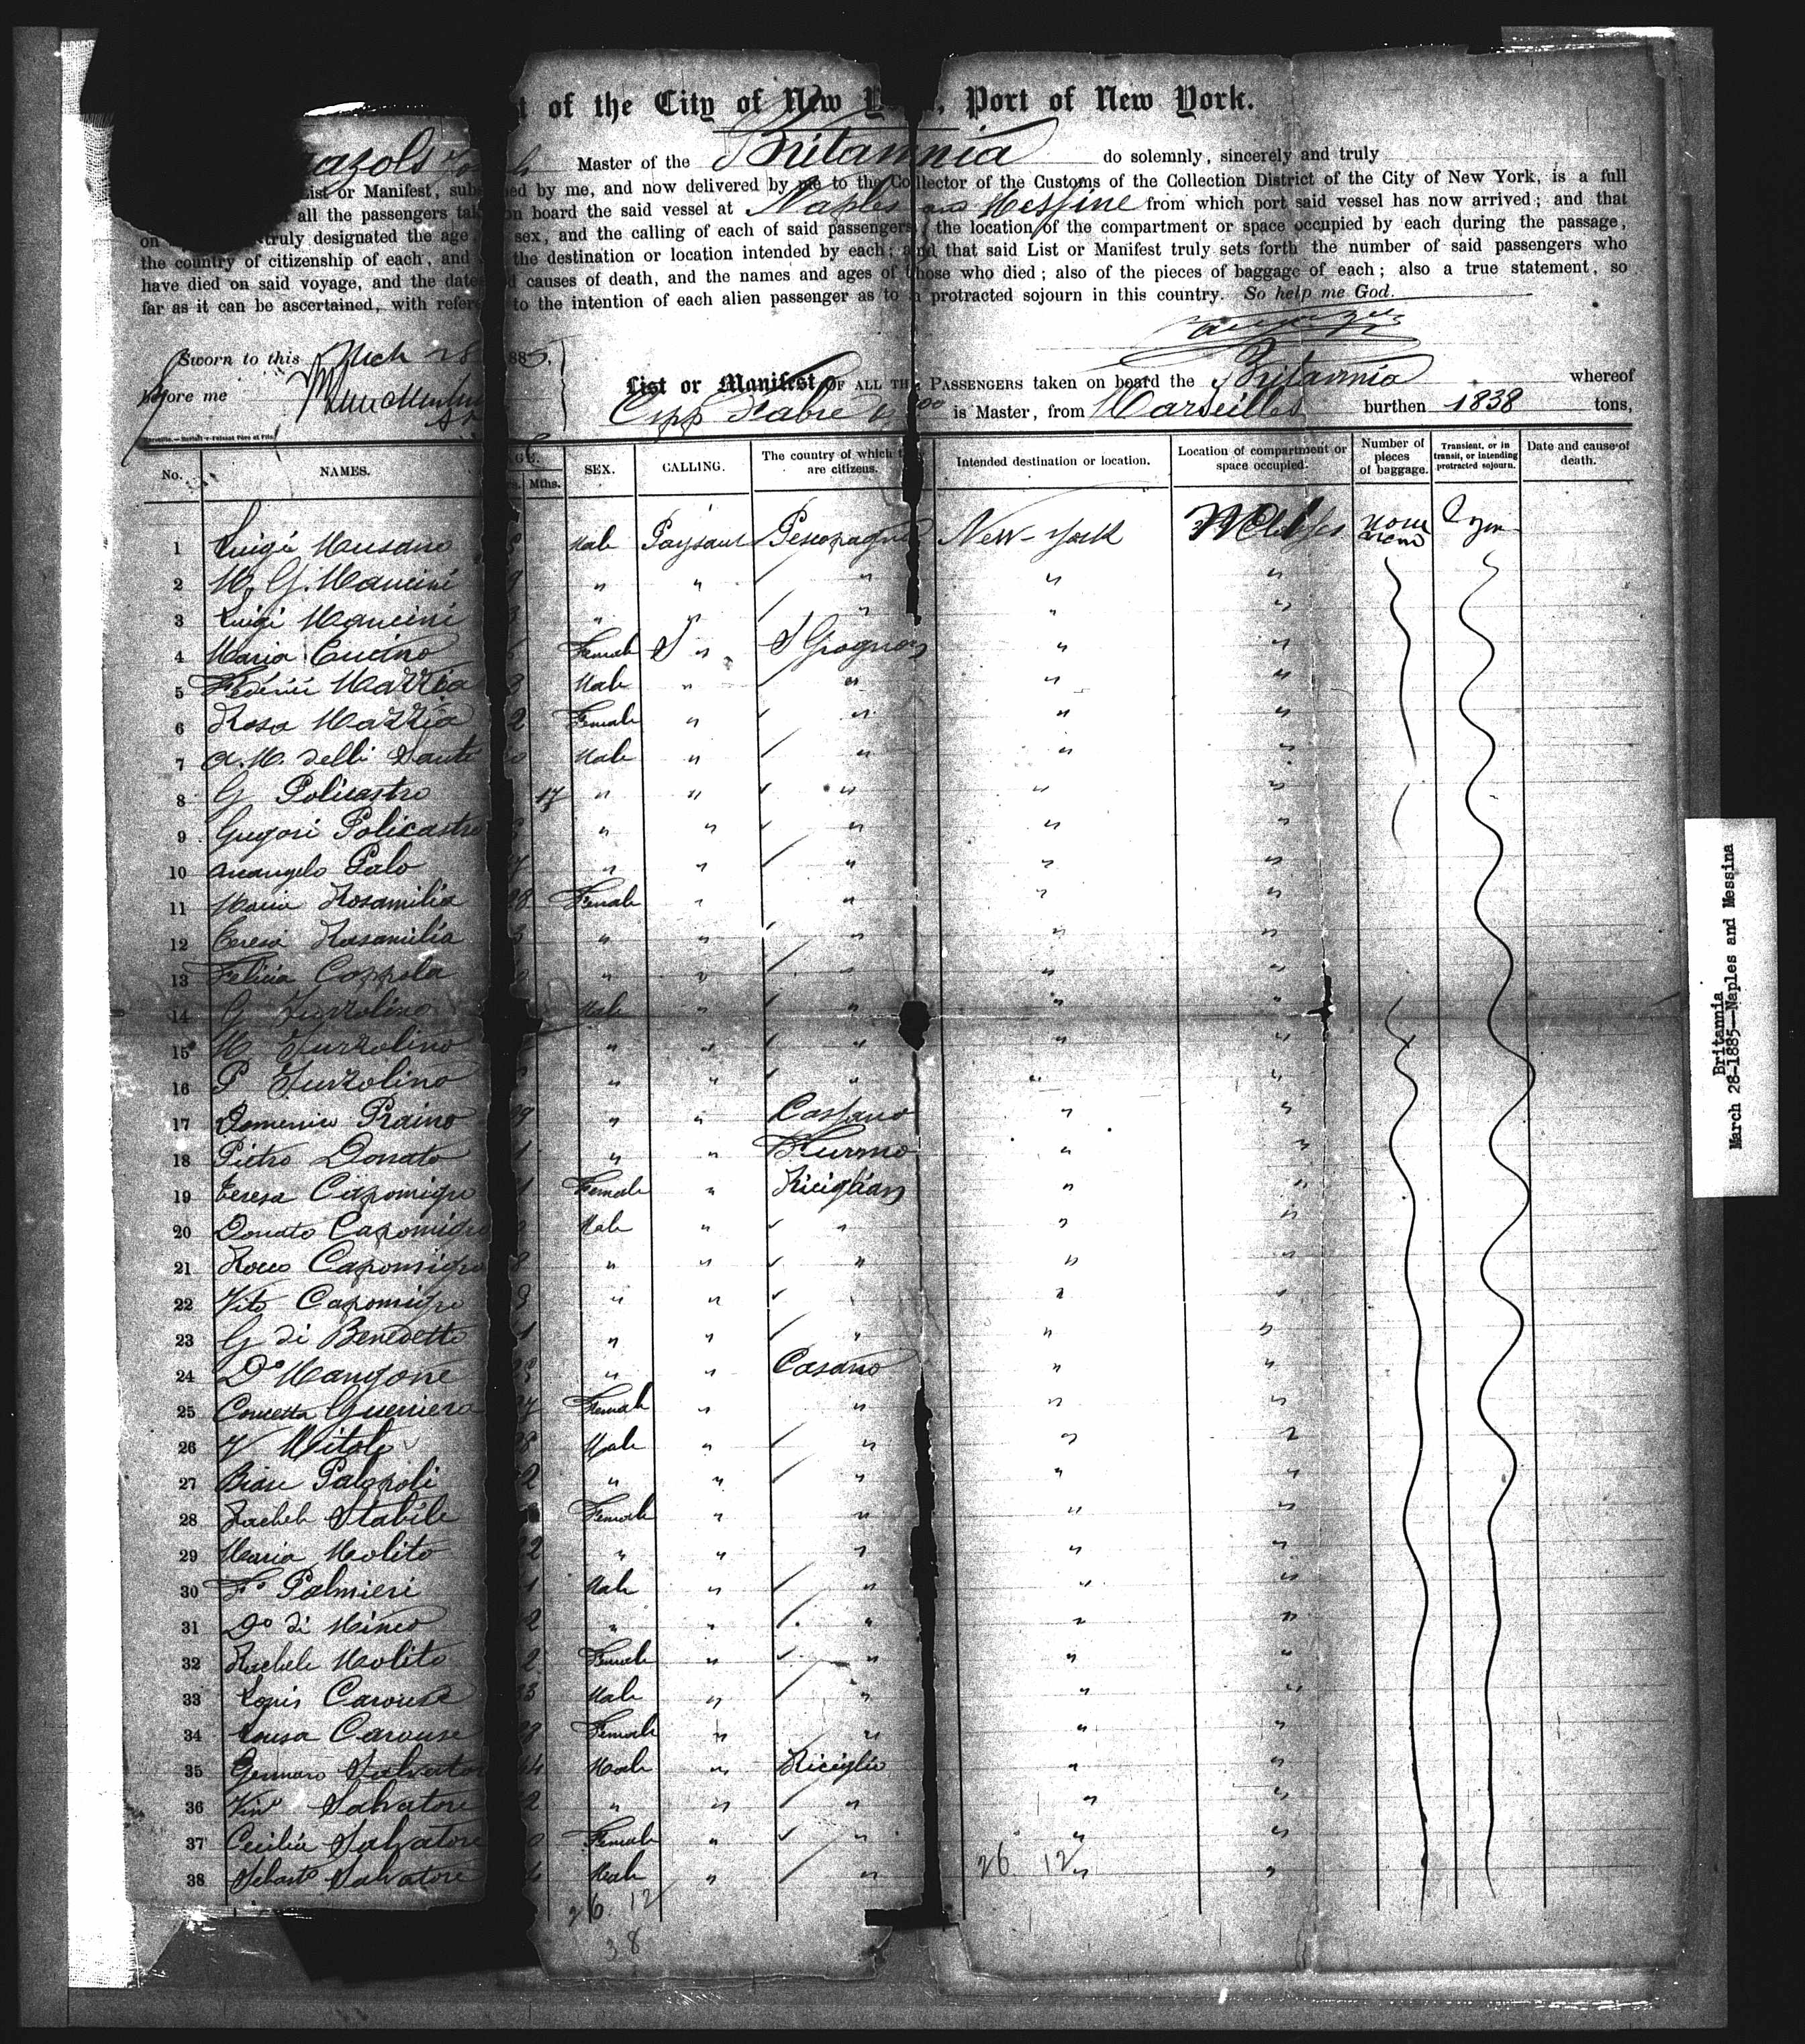 t of the City of New Y , Port of New York.
Master of the Britannia do solemnly, sincerely and truly
List or Manifest, sub ed by me, and now delivered by me to the Collector of the Customs of the Collection District of the City of New York, is a full
all the passengers tak on board the said vessel at Naples and Messine from which port said vessel has now arrived; and that
on truly designated the age, sex, and the calling of each of said passengers, the location of the compartment or space occupied by each during the passage,
the country of citizenship of each, and the destination or location intended by each; and that said List or Manifest truly sets forth the number of said passengers who
have died on said voyage, and the date d causes of death, and the names and ages of those who died; also of the pieces of baggage of each; also a true statement, so
far as it can be ascertained, with refere to the intention of each alien passenger as to a protracted sojourn in this country. So help me God.
Sworn to this Mch 28 188
before me
List or Manifest OF ALL THE PASSENGERS taken on board the Britannia whereof
Fabre is Master, from Marseilles burthen 1838 tons,
No. NAMES. GE. Mths. SEX. CALLING. The country of which they are citizens. Intended destination or location. Location of compartment or space occupied. Number of pieces of baggage. Transient, or in transit, or intending protracted sojourn. Date and cause of death.
1 Luigi Musano Male Paysant Pescopagno New-York
2 M. G. Mancini " " " " "
3 Luigi Mancini " " " " "
4 Maria Cucino Female " S Gregorio " "
5 Mazzia 3 Male " " " "
6 Rosa Mazzia 2 Female " " " "
7 A. M. delli Santi Male " " " "
8 G Policastro 17 " " " " "
9 Gregori Policastro " " " " "
10 Arcangelo Palo 7 " " " " "
11 Maria Rosamilia 28 Female " " " "
12 Teresa Rosamilia 3 " " " " "
13 Felicia Coppola " " " " "
14 G Zuzzolino Male " " " "
15 M Zuzzolino " " " " "
16 P Zuzzolino " " " " "
17 Domenico Praino 29 " " Cassano " "
18 Pietro Donato 1 " " " "
19 Teresa Capomigro 1 Female " Ricigliano " "
20 Donato Capomigro Male " " " "
21 Rocco Capomigro 8 " " " " "
22 Vito Capomigro 3 " " " "
23 G di Benedetto 1 " " " " "
24 Do Mangone " " Casano " "
25 Concetta Guerriera 27 Female " " " "
26 V Mitoli 28 Male " " " "
27 Biase Palopoli 2 " " " " "
28 Rachele Stabile Female " " " "
29 Maria Molito 22 " " " " "
30 Fo Palmieri 1 Male " " " "
31 Do di Minco 2 " " " " "
32 Rachele Molito 2 Female " " " "
33 Louis Carouse 33 Male " " " "
34 Louisa Carouse Female " " " "
35 Gennaro Salvatore 44 Male " Riciglio " "
36 Vino Salvatore 2 " " " " "
37 Cecilia Salvatore Female " " " "
38 Sebasto Salvatore Male " " " "
26 12
26 12
38
Britannia
March 28-1885--Naples and Messina